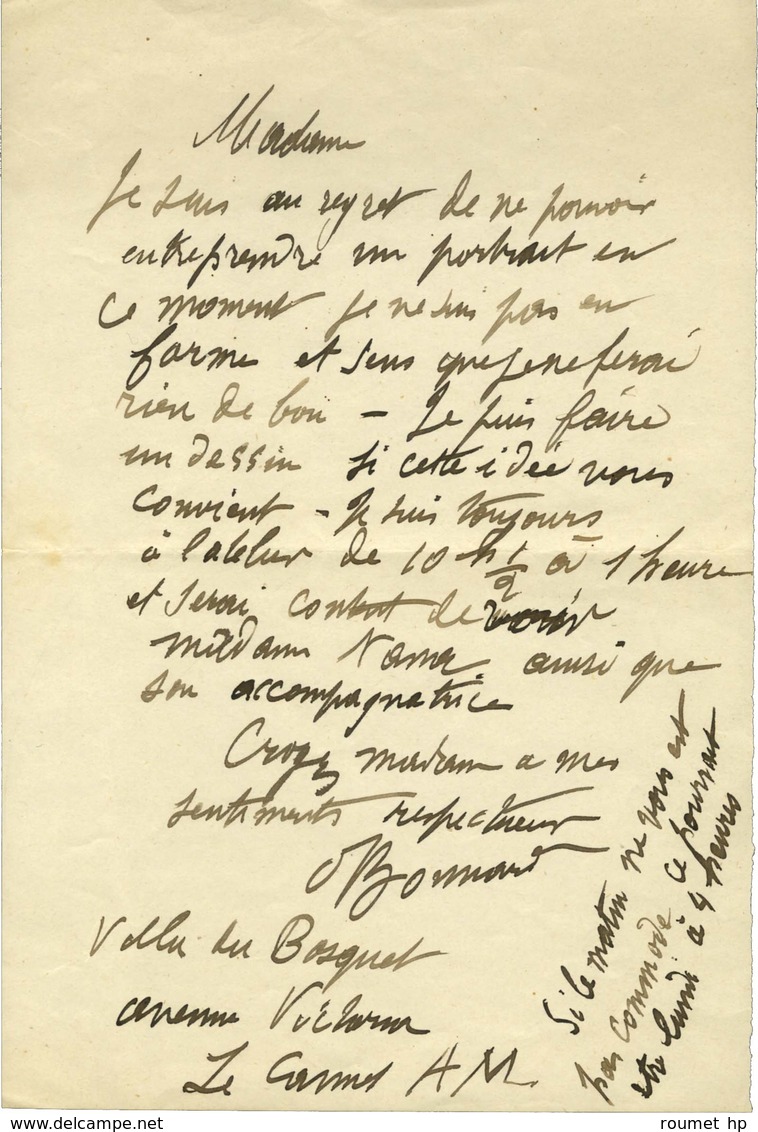 Madame
Je suis au regret de ne pouvoir
entreprendre un portrait en
ce moment je ne suis pas en
forme et sens que je ne ferai
rien de bon – Je puis faire
un dessin si cette idée vous
convient – Je suis toujours
à l'atelier de 10 h 1/2 à 1 heure
et serai content de voir
madame ainsi que
son accompagnatrice
Croyez madame a mes
sentiments respectueux
PBonnard
Villa du Bosquet
avenue Victoria
Le Cannet A M.
Si le matin ne vous est
pas commode ce pourrait
etre lundi à 4 heures
www.delcampe.net
roumet hp